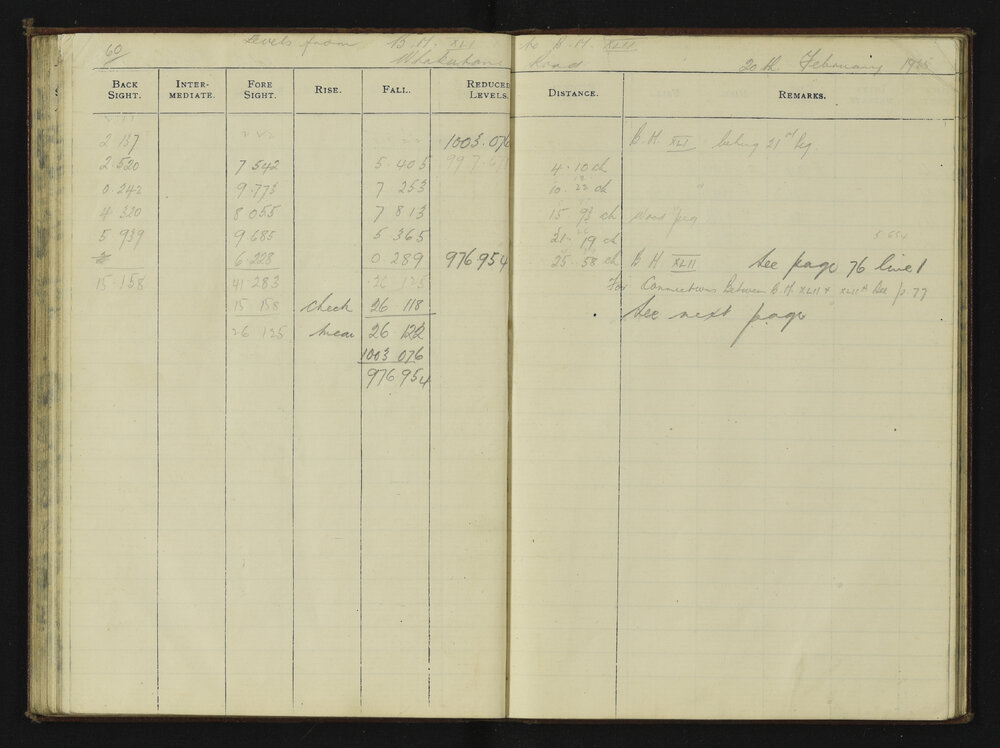 60 Levels from B.M. XLI to B.M. XLII
Whakatane Road 20th February
BACK SIGHT. INTER-MEDIATE. FORE SIGHT. RISE. FALL. REDUCED LEVELS. DISTANCE. REMARKS.
2 137 1003.076 B.M. XLI being 21st Peg
2.520 7 542 5.405 4.10 ch
0.242 9.773 7 253 10. ch "
4 320 8 055 7 813 15 93 ch Wood peg
5 939 9 685 5 365 21. 19 ch 5 654
6 228 0.289 976.954 25.58 ch B M XLII See page 76 line 1
15.158 41 283 26 125 For Connections Between B.M. XLII & See p. 77
15 158 check 26 118 See next page
26 125 mean 26 122
1003 076
976 954